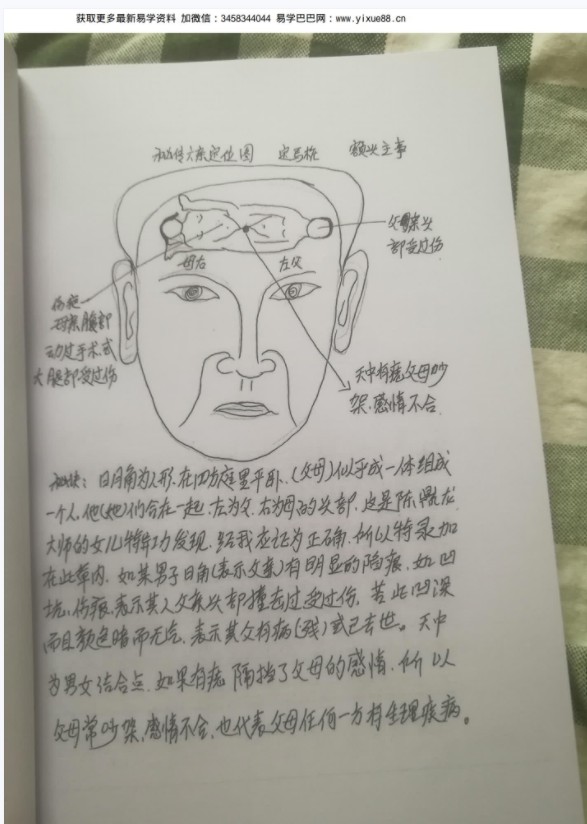 获取更多最新易学资料 加微信：3458344044 易学巴巴网：www.yixue88.cn
秘传六亲定位图 定马桩 额头主事
父母亲头
部受过伤
母右
左父
伤疤
母亲腹部
动过手术或
大腿部受过伤
天中有痣父母吵
架.感情不合.
秘诀：日月角为人形.在四方庭里平卧.(父母)似乎成一体组成
一个人.他(她)们合在一起.左为父.右为母的头部.这是陈
大师的女儿特异功发现.经我应证为正确.所以特录加
在此章内.如某男子日角(表示父亲)有明显的陷痕.如凹
坑.伤痕.表示其人父亲头部撞击过受过伤.若此凹深
而且颜色暗而无气.表示其父有病(残)或已去世。天中
为男女结合点.如果有痣 隔挡了父母的感情.所以
父母常吵架.感情不合.也代表父母任何一方有生理疾病。